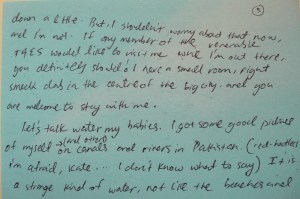 3
down a little. But I shouldn't worry about that now,
and I'm not. If any member of the venerable
TAES would like to visit me while I'm out there,
you definitely should! I have a small room, right
smack dab in the centre of the big city. and you
are welcome to stay with me.
Let's talk water my babies. I got some good pictures
of myself (and otters) on canals and rivers in Pakistan (red-
I'm afraid, Kate... I don't know what to say) It is
a strange kind of water, not like the beaches and